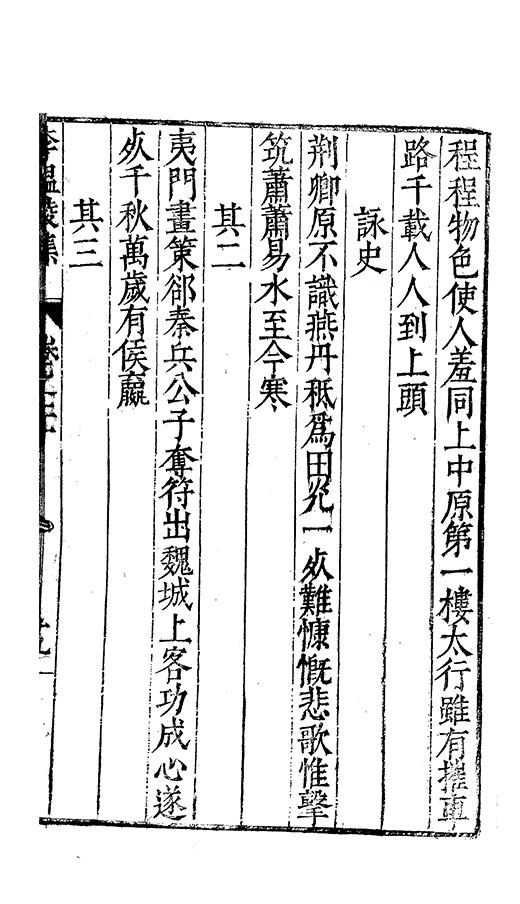 程程物色使人羞同上中原第一樓太行雖有摧車
路千載人人到上頭
詠史
荆卿原不識燕丹秪爲田光一死難慷慨悲歌惟擊
筑蕭蕭易水至今寒
其二
夷門畫策卻秦兵公子奪符出魏城上客功成心遂
死千秋萬歲有侯嬴
其三
李溫陵集